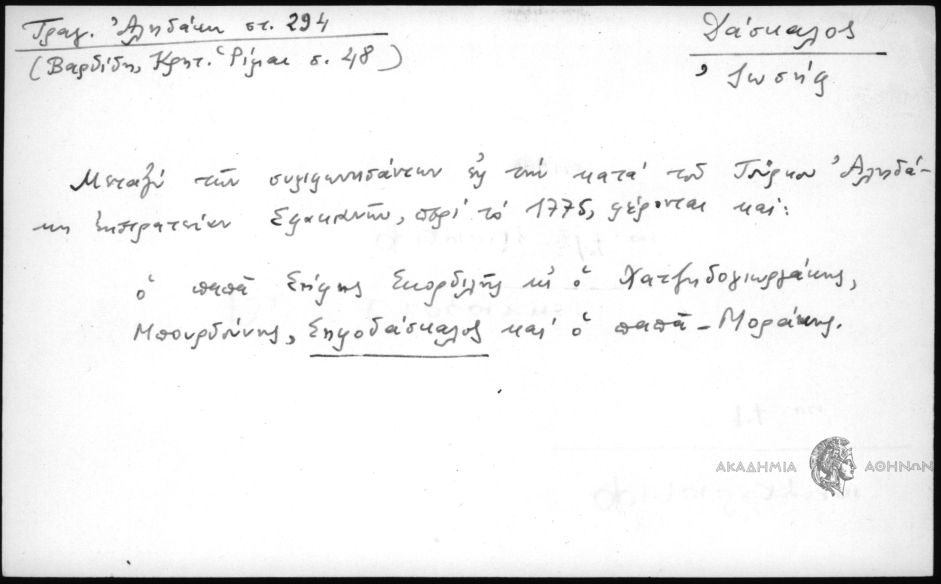 Τραγ. Ἀληδάκη στ. 294
(Βαρδίδη, Κρητ. Ῥίμαι σ. 48)
Δάσκαλος
Ἰωσήφ
Μεταξύ τῶν συμφωνησάντων εἰς τήν κατά τοῦ Τούρκου Ἀληδά-
κη ἐκστρατείαν Σφακιανῶν, περί τό 1775, φέρονται καί:
ὁ παπᾶ Σήφης Σκορδίλης κι ὁ Χατζηδογιωργάκης,
Μπουρδούνης, Σηφοδάσκαλος καί ὁ παπᾶ-Μοράκης.
ΑΚΑΔΗΜΙΑ ΑΘΗΝΩΝ